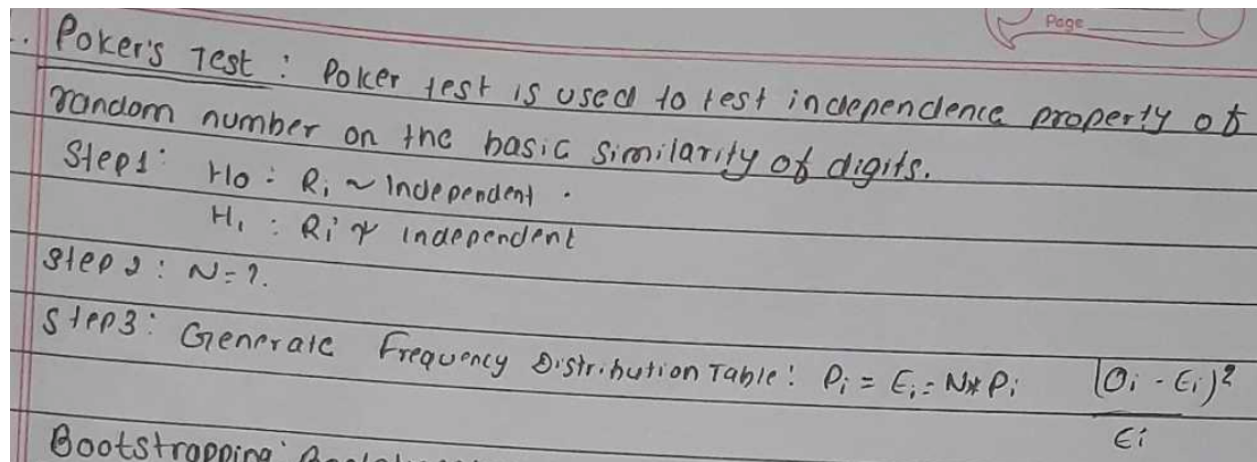 Page
Poker's Test : Poker test is used to test independence property of
random number on the basic similarity of digits.
Step1: H0 : Ri ~ Independent .
H1 : Ri ≁ independent
Step 2 : N = ?.
Step3: Generate Frequency Distribution Table: Pi = Ei = N*Pi (Oi - Ei)²
Ei
Bootstrapping: